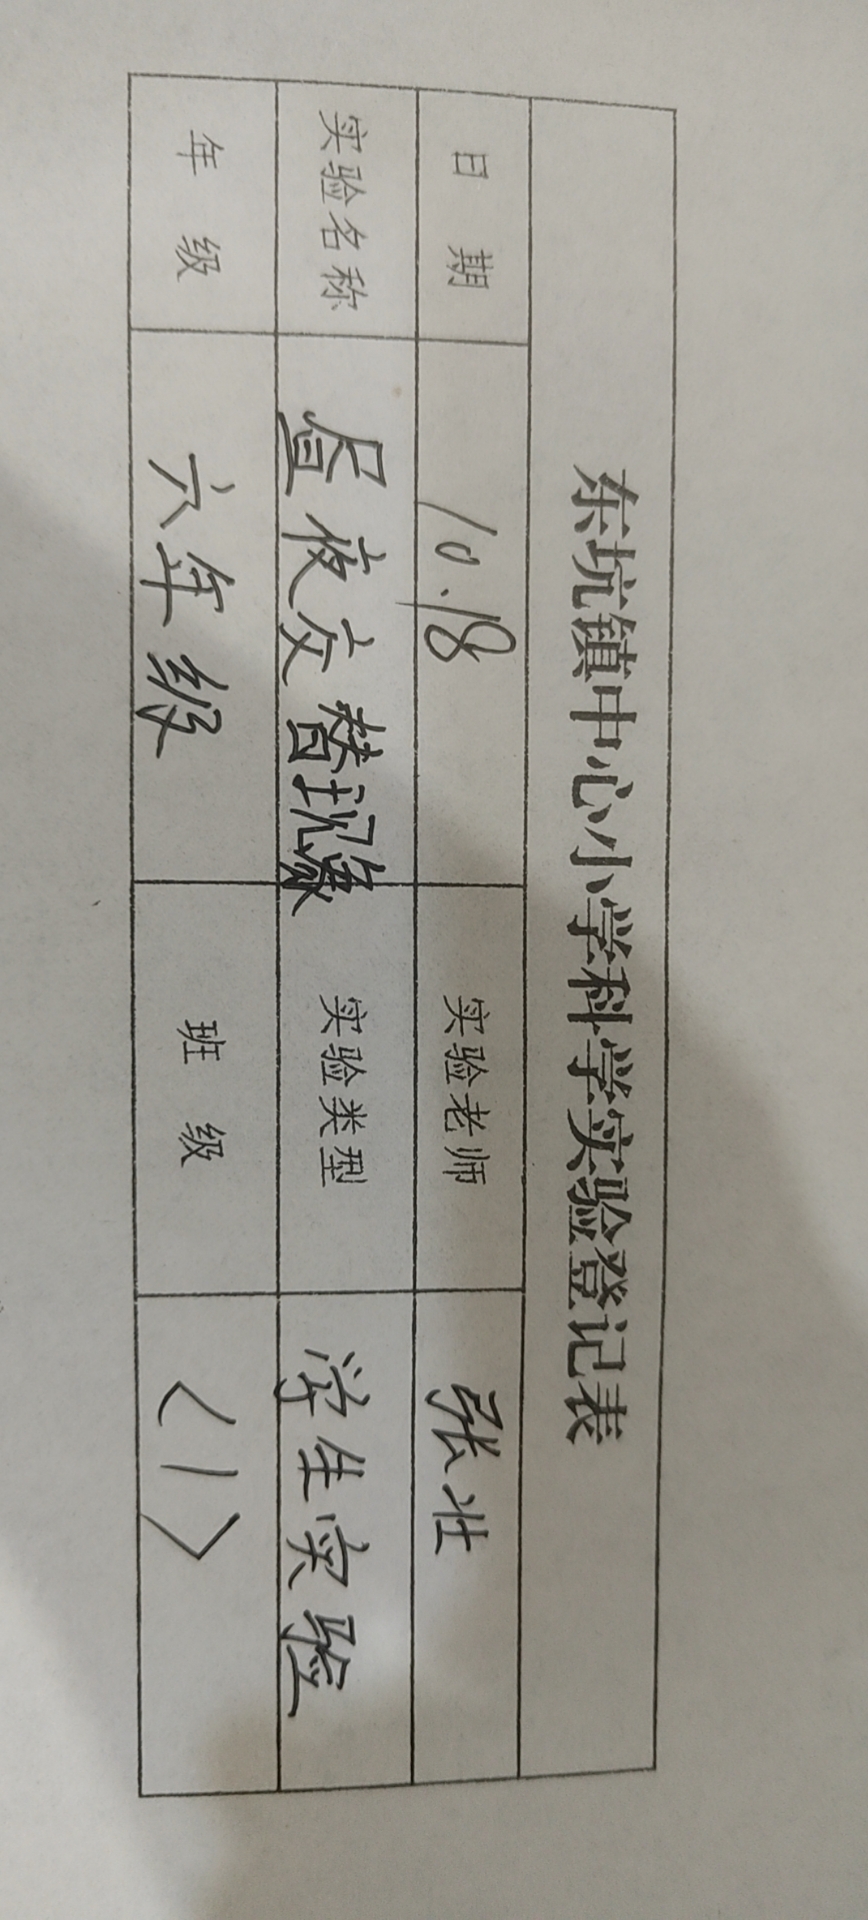 东坑镇中心小学科学实验登记表
日 期 10.18 实验老师 张壮
实验名称 昼夜交替现象 实验类型 学生实验
年 级 六年级 班 级 〈1〉